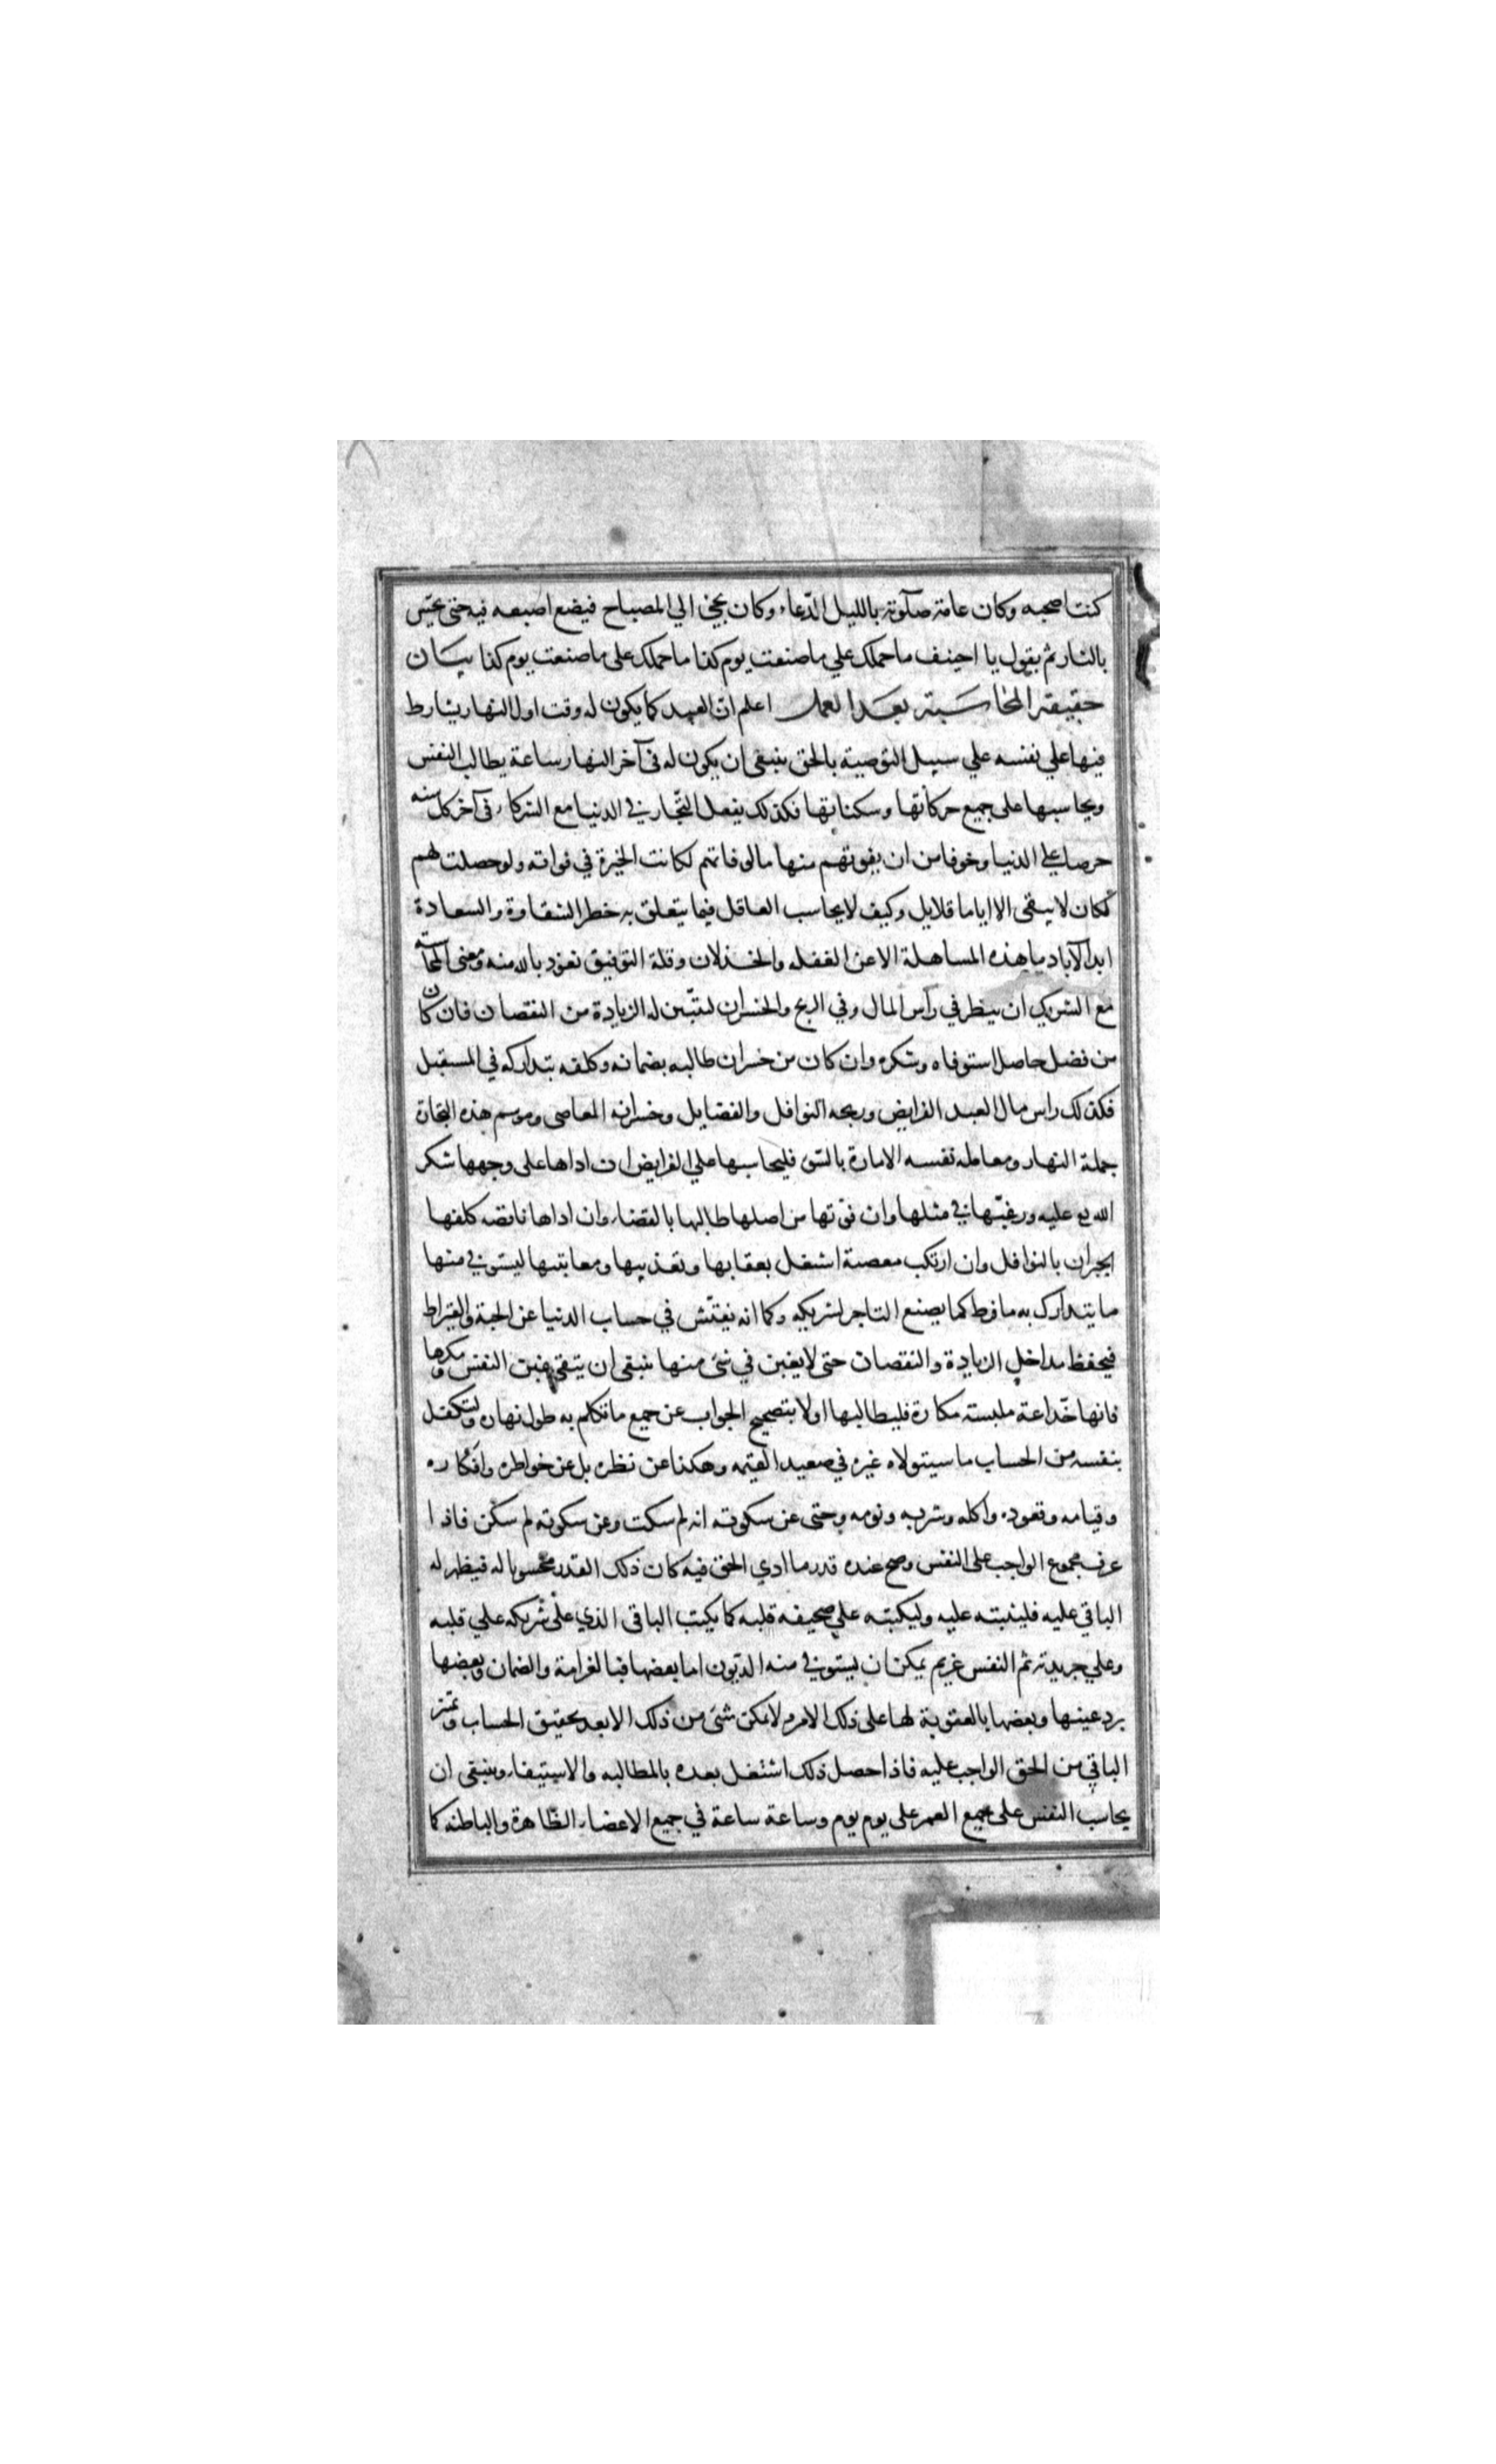 كنت اصحبه وكان عامة صلوته بالليل الدّعاء وكان يجئ الي المصباح فيضع اصبعه فيه حتى يحسّ
بالنار ثم يقول يا احنيف ما حملك علي ما صنعت يوم كذا ما حملك على ما صنعت يوم كذا بيان
حقيقة المحاسبة بعد العمل اعلم ان العبد كما يكون له وقت اول النهار يشارط
فيها علي نفسه علي سبيل التوصية بالحق ينبغى ان يكون له فى آخر النهار ساعة يطالب النفس
ويحاسبها على جميع حركاتها وسكناتها فكذلك يفعل التّجار في الدنيا مع الشركاء فى آخر كل سنه
حرصا علي الدنيا وخوفا من ان يفوتهم منها ما لو فاتهم لكانت الخيرة في فواته ولو حصلت لهم
لكان لا يبقى الا اياما قلايل وكيف لا يحاسب العاقل فيما يتعلق به خطر الشقاوة والسعادة
ابد الآباد ما هذه المساهلة الا عن الغفله والخذلان وقلة التوفيق نعوذ بالله منه ومعنى المحاسبة
مع الشريك ان ينظر في رأس المال وفي الربح والخسران ليتبّين له الزيادة من النقصان فان كان
من فضل حاصل استوفاه وشكره وان كان من خسران طالبه بضمانه وكلفه بتداركه في المستقبل
فكذلك راس مال العبد الفرايض وربحه النوافل والفضايل وخسرانه المعاصى وموسم هذه التجارة
جملة النهار ومعامله نفسه الامارة بالسّوء فليحاسبها علي الفرايض ان اداها على وجهها شكر
الله تع عليه ورغّبها في مثلها وان فوّتها من اصلها طالبها بالقضاء وان اداها ناقصه كلفها
الجبران بالنوافل وان ارتكب معصية اشتغل بعقابها وتعذيبها ومعاتبتها ليستوفي منها
ما يتدارك به ما فرط كما يصنع التاجر لشريكه وكما انه يفتّش في حساب الدنيا عن الحبة والقيراط
فيحفظ مداخل الزيادة والنقصان حتى لا يغبن في شئ منها ينبغى ان يتقى غبن النفس ومكرها
فانها خّداعة ملبسته مكارة فليطالبها اولا بتصحيح الجواب عن جميع ما تكلم به طول نهاره وليتكفل
بنفسه من الحساب ما سيتولاه غيره في صعيد القيمه وهكذا عن نظره بل عن خواطره وافكاره
وقيامه وقعوده واكله وشربه ونومه وحتى عن سكوته انه لم سكت وعن سكوته لم سكن فاذا
عرف مجموع الواجب على النفس وصح عنده قدر ما ادي الحق فيه كان ذلك القدر محسوبا له فيظهر له
الباقي عليه فليثبته عليه وليكتبه علي صحيفه قلبه كما يكتب الباقى الذي على شريكه علي قلبه
وعلي جريدته ثم النفس غريم يمكن ان يستوفي منه الديون اما بعضها فبالغرامة والضمان وبعضها
برد عينها وبعضها بالعقوبة لها على ذلك الامر ولا يمكن شئ من ذلك الا بعد تحقيق الحساب وتميز
الباقي من الحق الواجب عليه فاذا حصل ذلك اشتغل بعده بالمطالبه والاستيفاء وينبغى ان
يحاسب النفس على جميع العمر على يوم يوم وساعة ساعة في جميع الاعضاء الظاهرة والباطنه كما